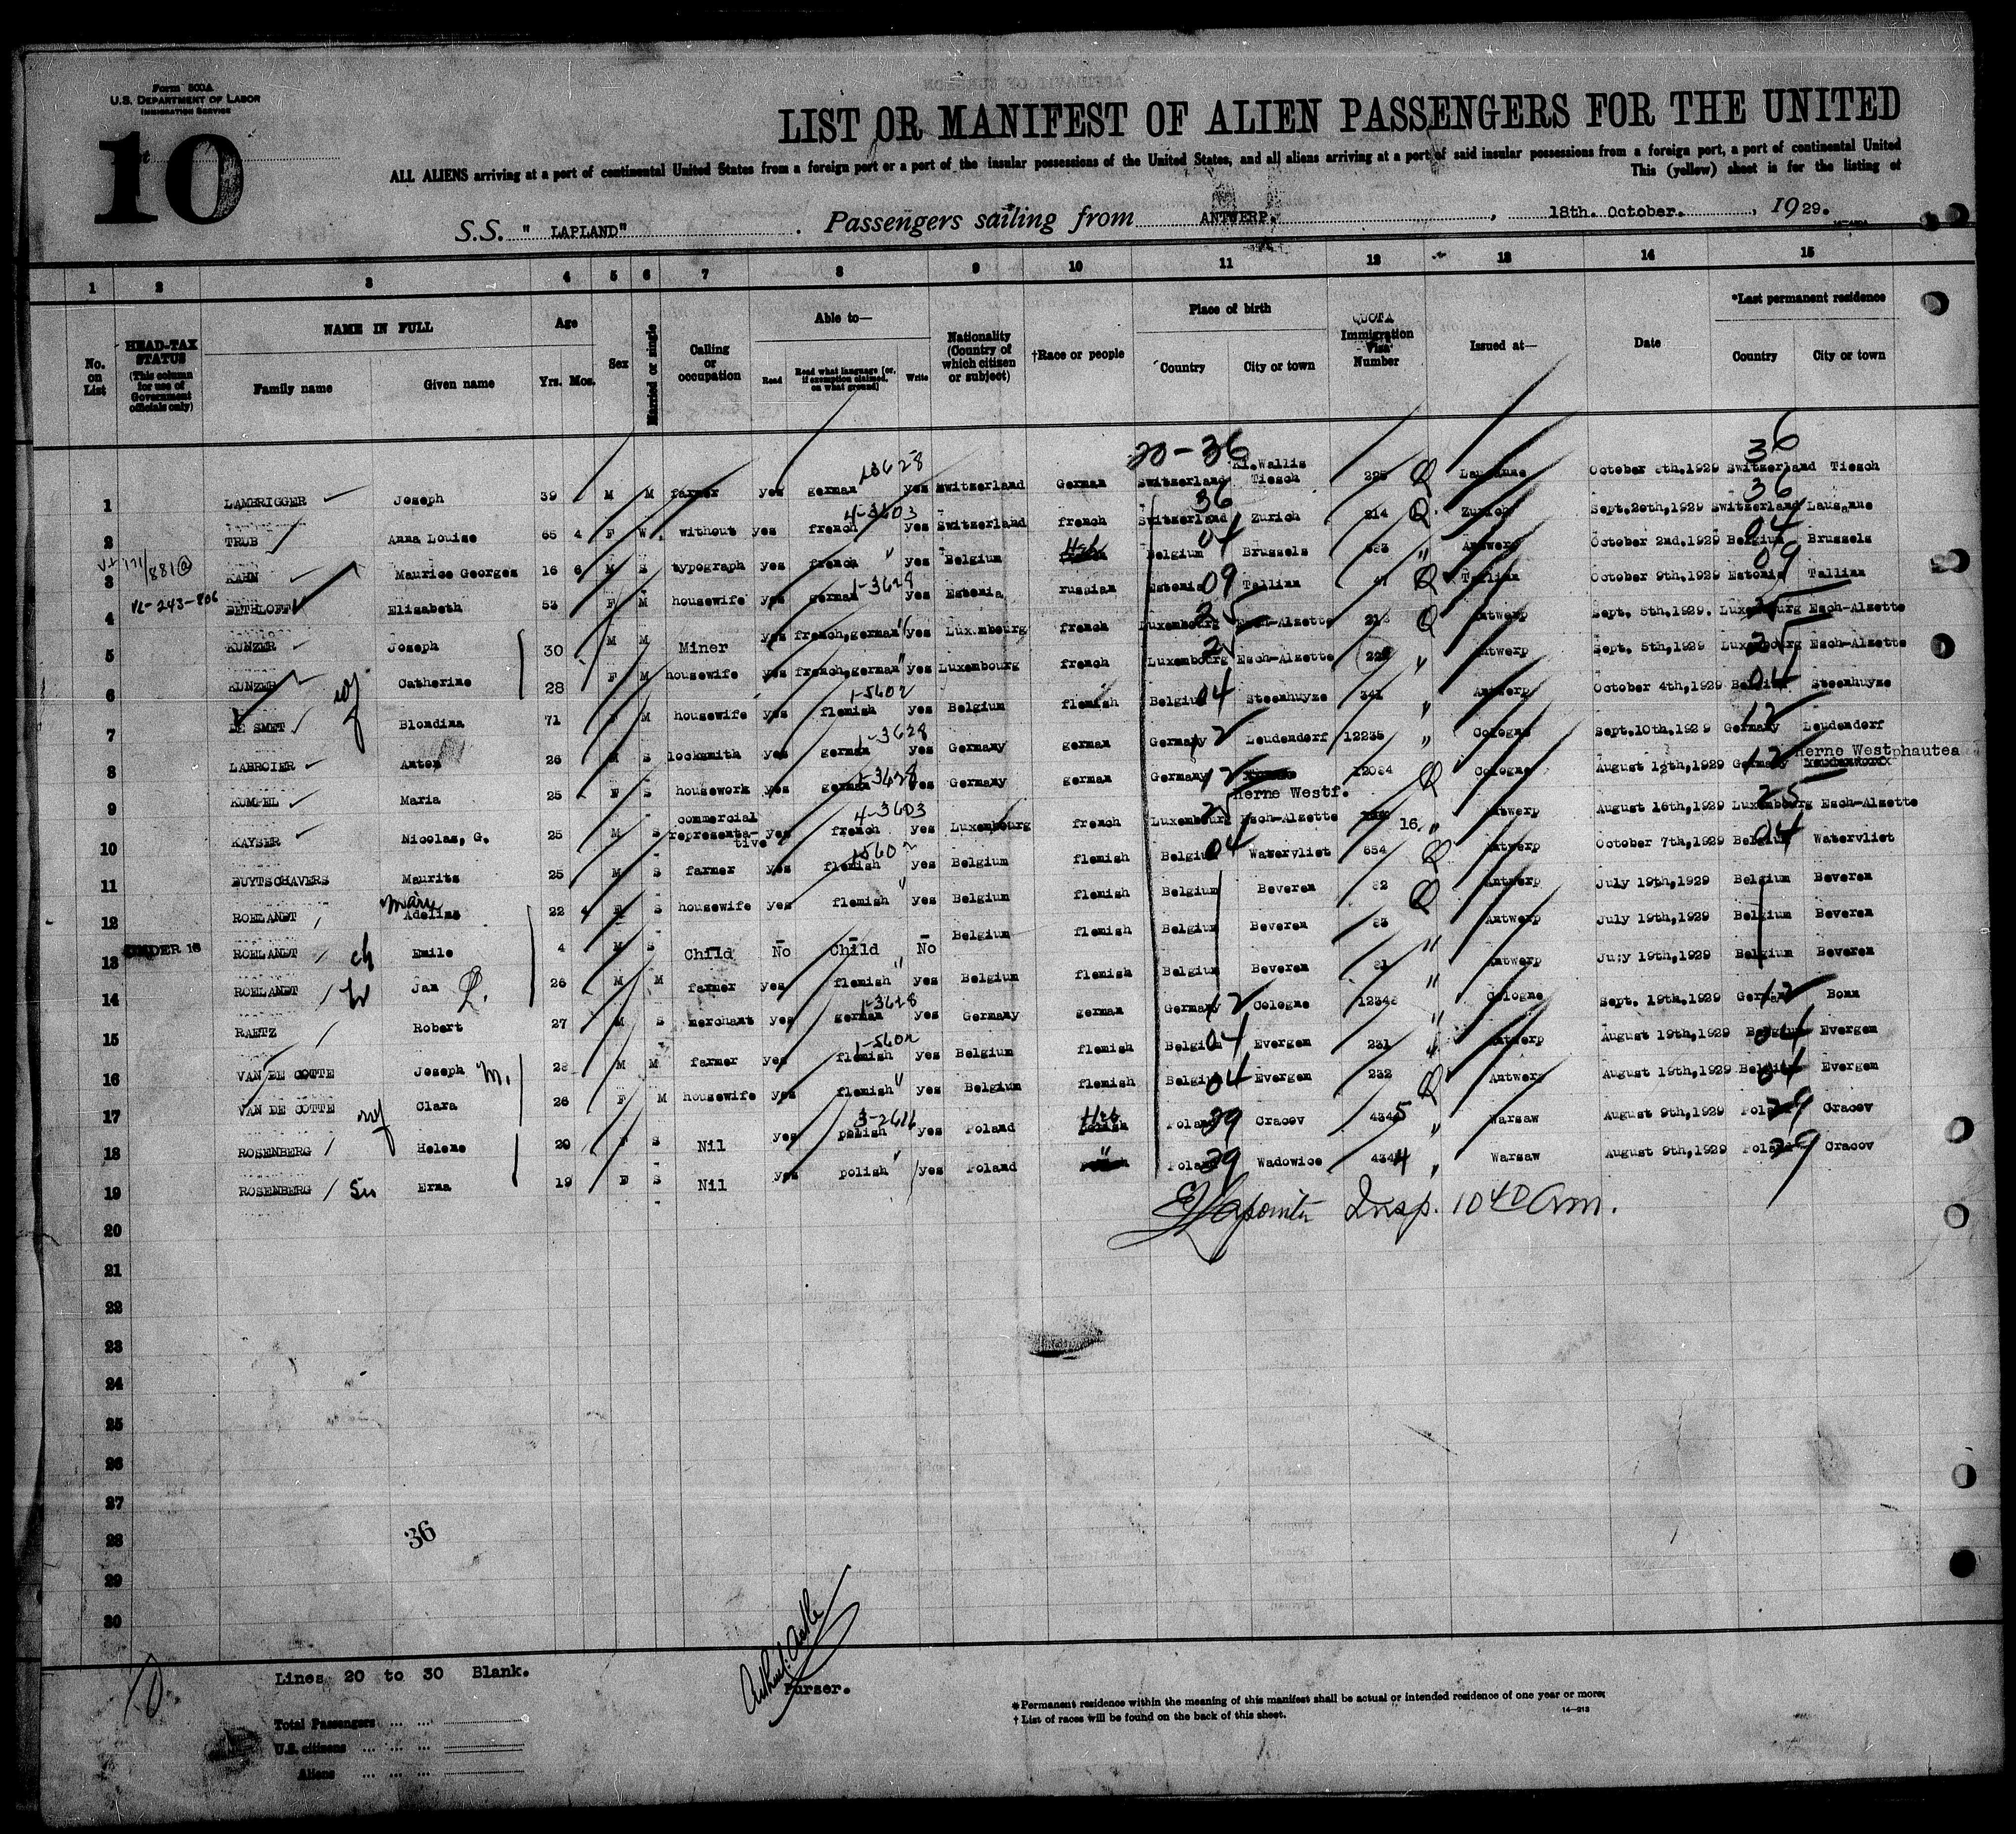 Form 500A
U.S. DEPARTMENT OF LABOR
IMMIGRATION SERVICE
10
LIST OR MANIFEST OF ALIEN PASSENGERS FOR THE UNITED
ALL ALIENS arriving at a port of continental United States from a foreign port or a port of the insular possessions of the United States, and all aliens arriving at a port of said insular possessions from a foreign port, a port of continental United
This (yellow) sheet is for the listing of
S.S. " LAPLAND" . Passengers sailing from ANTWERP. , 18th. October. , 1929.
1 2 3 4 5 6 7 8 9 10 11 12 13 14 15
No. on List
HEAD-TAX STATUS (This column for use of Government officials only)
NAME IN FULL
Family name Given name
Age
Yrs. Mos.
Sex
Married or single
Calling or occupation
Able to—
Read Read what language [or, if exemption claimed, on what ground] Write
Nationality (Country of which citizen or subject)
†Race or people
Place of birth
Country City or town
QUOTA Immigration Visa Number
Issued at—
Date
*Last permanent residence
Country City or town
20-36 36
1 LAMBRIGGER Joseph 39 M M farmer yes german 13628 yes Switzerland German Switzerland Kt.Wallis Tiesch Q Lausanne October 8th,1929 Switzerland Tiesch
2 TRUB Anna Louise 65 4 F W. without yes french 4-3603 yes Switzerland french Switzerland 36 Zurich 214 Q Zurich Sept.26th,1929 Switzerland 36 Lausanne
3 KAHN Maurice Georges 16 6 M S typograph yes french " yes Belgium Belgium 04 Brussels " Antwerp October 2nd.1929 Belgium 04 Brussels
4 Elisabeth 53 F M housewife yes german 1-3628 yes Estonia russian Estonia 09 Tallinn Q Tallinn October 9th,1929 Estonia 09 Tallinn
5 KUNZER Joseph 30 M M Miner yes french,german " yes Luxembourg french Luxembourg 25 Esch-Alzette Q Antwerp Sept. 5th,1929. Luxembourg 25 Esch-Alzette
6 KUNZER wf Catherine 28 F M housewife yes french,german " yes Luxembourg french Luxembourg 25 Esch-Alzette " Antwerp Sept. 5th,1929 Luxembourg 25 Esch-Alzette
7 DE SMET Blondina 71 F M housewife yes flemish 1-5602 yes Belgium flemish Belgium 04 Steenhuyze 341 " Antwerp October 4th,1929 Belgium 04 Steenhuyze
8 LABROIER Anton 26 M S locksmith yes german 1-3628 yes Germany german Germany 12 Leudendorf 12235 " Cologne Sept.10th,1929 Germany 12 Leudendorf
9 KUMPEL Maria 25 F S housework yes german 1-3628 yes Germany german Germany 12 Herne Westf. 12084 Q Cologne August 13th,1929 Germany 12 Herne Westphautea
10 KAYSER Nicolas, G. 25 M S commercial representative yes french 4-3603 yes Luxembourg french Luxembourg 25 Esch-Alzette 16 " Antwerp August 16th,1929 Luxembourg 25 Esch-Alzette
11 BUYTSCHAVERS Maurits 25 M S farmer yes flemish 15602 yes Belgium flemish Belgium 04 Watervliet 654 Q Antwerp October 7th,1929 Belgium 04 Watervliet
12 ROELANDT Marie Adelina 22 4 F S housewife yes flemish " yes Belgium flemish Belgium Beveren 82 Q Antwerp July 19th,1929 Belgium Beveren
UNDER 16
13 ROELANDT ch Emile 4 M S Child No Child No Belgium flemish Belgium Beveren 83 " Antwerp July 19th,1929 Belgium Beveren
14 ROELANDT Jan 26 M M farmer yes flemish " yes Belgium flemish Belgium Beveren 81 " Antwerp July 19th,1929 Belgium Beveren
15 RAETZ Robert 27 M S merchant yes german 1-3628 yes Germany german Germany 12 Cologne " Cologne Sept. 19th,1929 Germany 12 Bonn
16 VAN DE COTTE Joseph M. 28 M M farmer yes flemish 1-5602 yes Belgium flemish Belgium 04 Evergem 231 " Antwerp August 19th,1929 Belgium 04 Evergem
17 VAN DE COTTE wf Clara 26 F M housewife yes flemish " yes Belgium flemish Belgium 04 Evergem 232 Q Antwerp August 19th,1929 Belgium 04 Evergem
18 ROSENBERG Helene 20 F S Nil yes polish 3-2616 yes Poland Poland 29 Cracov 4345 " Warsaw August 9th,1929 Poland 29 Cracov
19 ROSENBERG Sis Erna 19 F S Nil yes polish " yes Poland " Poland 29 Wadowice 4344 " Warsaw August 9th,1929 Poland 29 Cracov
Insp. 10 40 Am.
20
21
22
23
24
25
26
27
28
36
29
30
10
Lines 20 to 30 Blank.
Purser.
Total Passengers
U.S. citizens
Aliens
* Permanent residence within the meaning of this manifest shall be actual or intended residence of one year or more.
† List of races will be found on the back of this sheet.
14—213